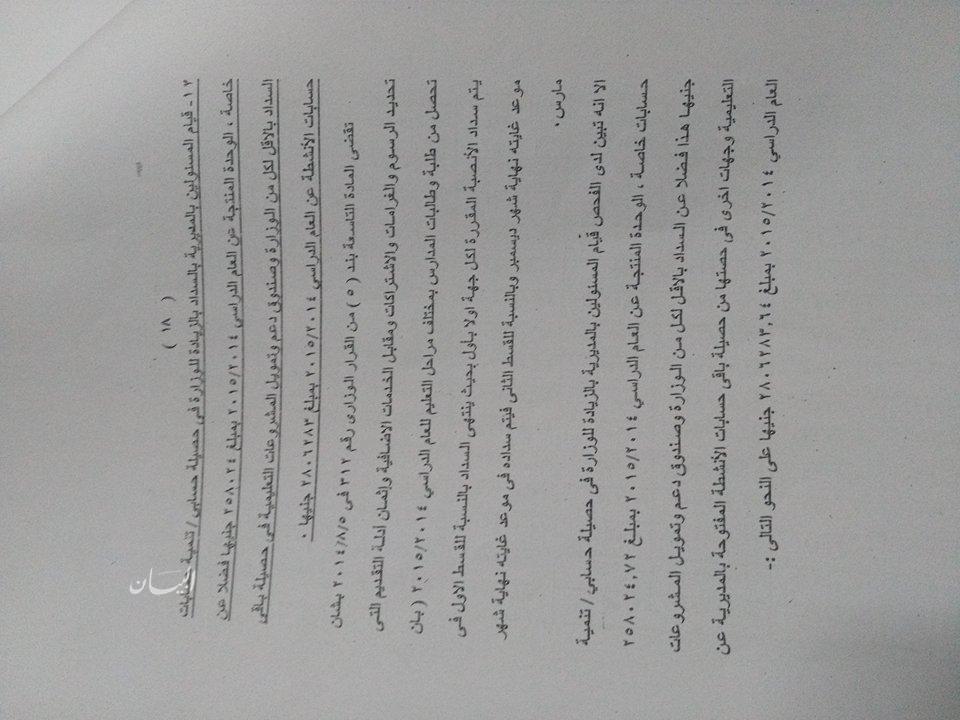 ( ١٨ )
١٢- قيام المسئولين بالمديرية بالسداد بالزيادة للوزارة فى حصيلة حسابى / تنمية حسابات
خاصة ، الوحدة المنتجة عن العام الدراسي ٢٠١٥/٢٠١٤ بمبلغ ٢٥٨٠٢٤ جنيها فضلا عن
السداد بالاقل لكل من الوزارة وصندوق دعم وتمويل المشروعات التعليمية فى حصيلة باقى
حسابات الأنشطة عن العام الدراسي ٢٠١٥/٢٠١٤ بمبلغ ٢٨٠٦٢٨٣ جنيها .
تقضى المادة التاسعة بند ( ٥ ) من القرار الوزارى رقم ٣١٢ فى ٢٠١٤/٨/٥ بشان
تحديد الرسوم والغرامات والاشتراكات ومقابل الخدمات الاضافية واثمان ادلة التقديم التى
تحصل من طلبة وطالبات المدارس بمختلف مراحل التعليم للعام الدراسي ٢٠١٥/٢٠١٤ ( بان
يتم سداد الأنصبة المقررة لكل جهة اولا باول بحيث ينتهى السداد بالنسبة للقسط الاول فى
موعد غايته نهاية شهر ديسمبر وبالنسبة للقسط الثانى فيتم سداده فى موعد غايته نهاية شهر
مارس .
الا انه تبين لدى الفحص قيام المسئولين بالمديرية بالزيادة للوزارة فى حصيلة حسابي / تنمية
حسابات خاصة ، الوحدة المنتجة عن العام الدراسي ٢٠١٥/٢٠١٤ بمبلغ ٢٥٨٠٢٤,٧٢
جنيها هذا فضلا عن السداد بالاقل لكل من الوزارة وصندوق دعم وتمويل المشروعات
التعليمية وجهات اخرى فى حصتها من حصيلة باقى حسابات الأنشطة المفتوحة بالمديرية عن
العام الدراسي ٢٠١٥/٢٠١٤ بمبلغ ٢٨٠٦٢٨٣,٦٤ جنيها على النحو التالى :-